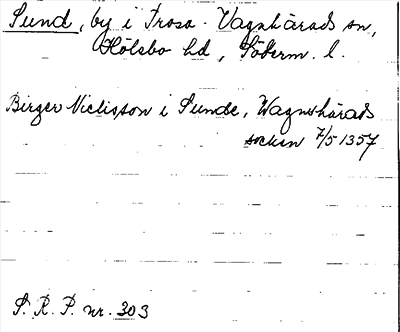 Sund, by i Trosa-Vagnhärads sn,
Hölebo hd, Söderm. l.
Birger Niclisson i Sunde, Wagnshärads
socken 7/5 1357
S. R. P. nr. 303